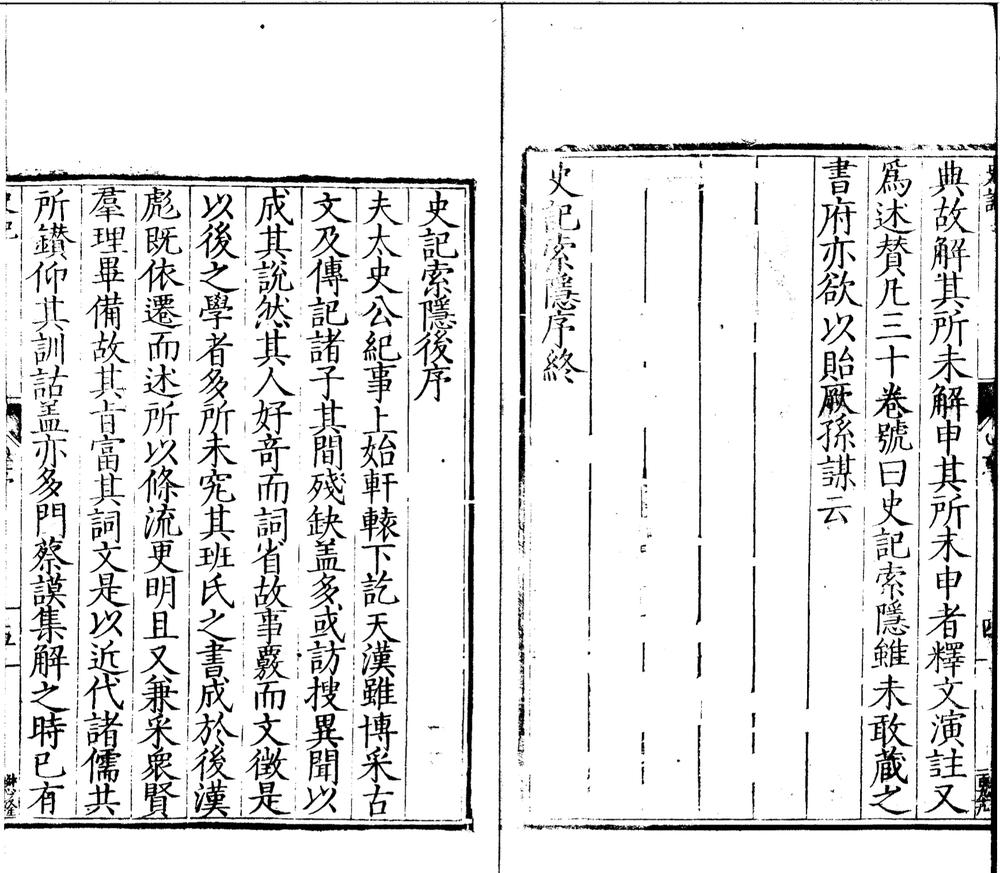 典故解其所未解申其所未申者釋文演註又
爲述賛凡三十卷號曰史記索隱雖未敢蔵之
書府亦欲以貽厥孫謀云
史記索隱序終
史記索隱後序
夫太史公紀事上始軒轅下訖天漢雖博采古
文及傳記諸子其間殘缺盖多或訪搜異聞以
成其說然其人好竒而詞省故事覈而文微是
以後之學者多所未究其班氏之書成於後漢
彪既依遷而述所以條流更明且又兼采衆賢
羣理畢備故其旨富其詞文是以近代諸儒共
所鑚仰其訓詁盖亦多門蔡謨集解之時已有